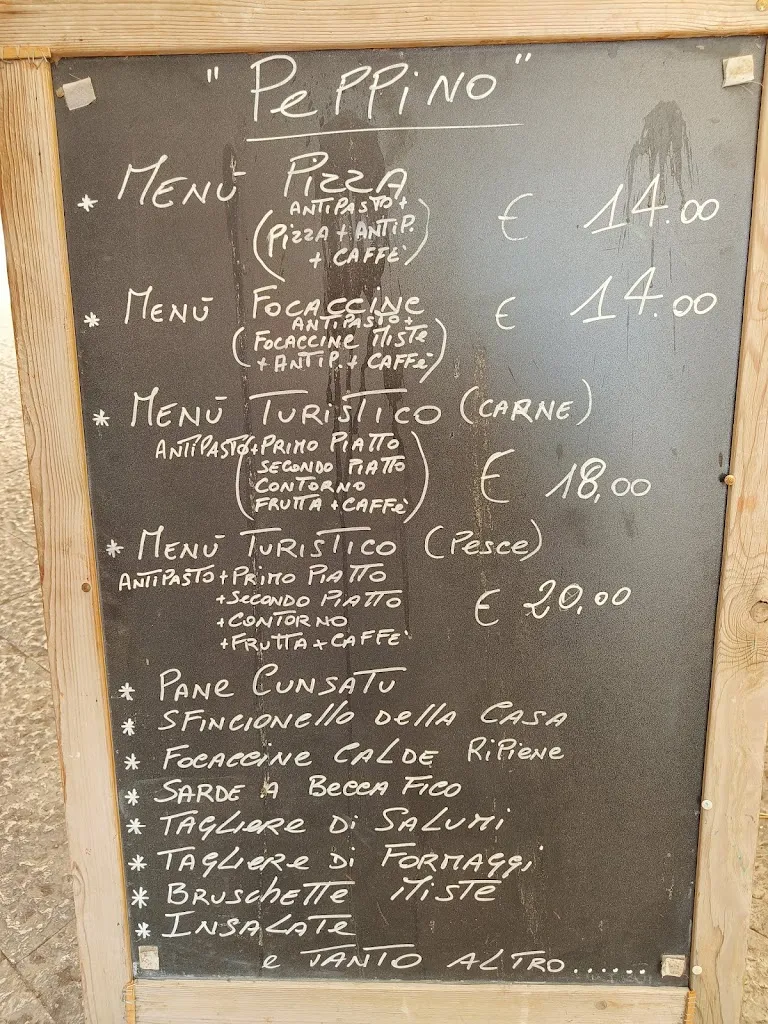 "PePPiNO"
* MENÙ PizzA € 14.00
ANTIPASTO +
(PizzA + ANTiP.
+ CAFFÈ)
* MENÙ FOCACCINE € 14.00
ANTIPASTO +
(FOCACCINE MISTE
+ ANTiP. + CAFFÈ)
* MENÙ TURISTICO (CARNE)
ANTIPASTO + PRIMO PIATTO
(SECONDO PIATTO
CONTORNO
FRUTTA + CAFFÈ) € 18,00
* MENÙ TURISTICO (Pesce)
ANTIPASTO + PRIMO PIATTO
+ SECONDO PIATTO
+ CONTORNO € 20,00
+ FRUTTA + CAFFE'
* PANE CUNSATU
* SFINCIONello Della CASA
* FOCACCINE CALDE RiPiENE
* SARDE A BECCA FICO
* TAGLIERE Di SALUMI
* TAGLIERE Di FORMAGGi
* BRUSCHETTE MISTE
* INSALATE
e TANTO ALTRO......